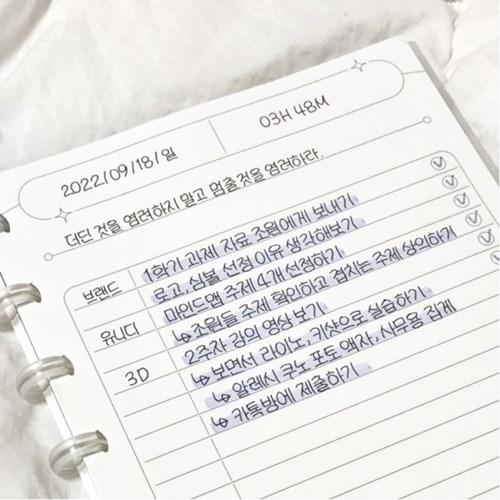 2022/09/18/일
03H 48M
더딘 것을 염려하지 말고 멈출 것을 염려하라.
브랜드 1학기 과제 자료 조원에게 보내기
로고, 심볼 선정 이유 생각해보기
유니디 마인드맵 주제 4개 선정하기
↳ 조원들 주제 확인하고 겹치는 주제 상의하기
3D 2주차 강의 영상 보기
↳ 보면서 라이노, 키샷으로 실습하기
↳ 알레시 쿠노 포토 액자, 사무용 집게
↳ 카톡방에 제출하기